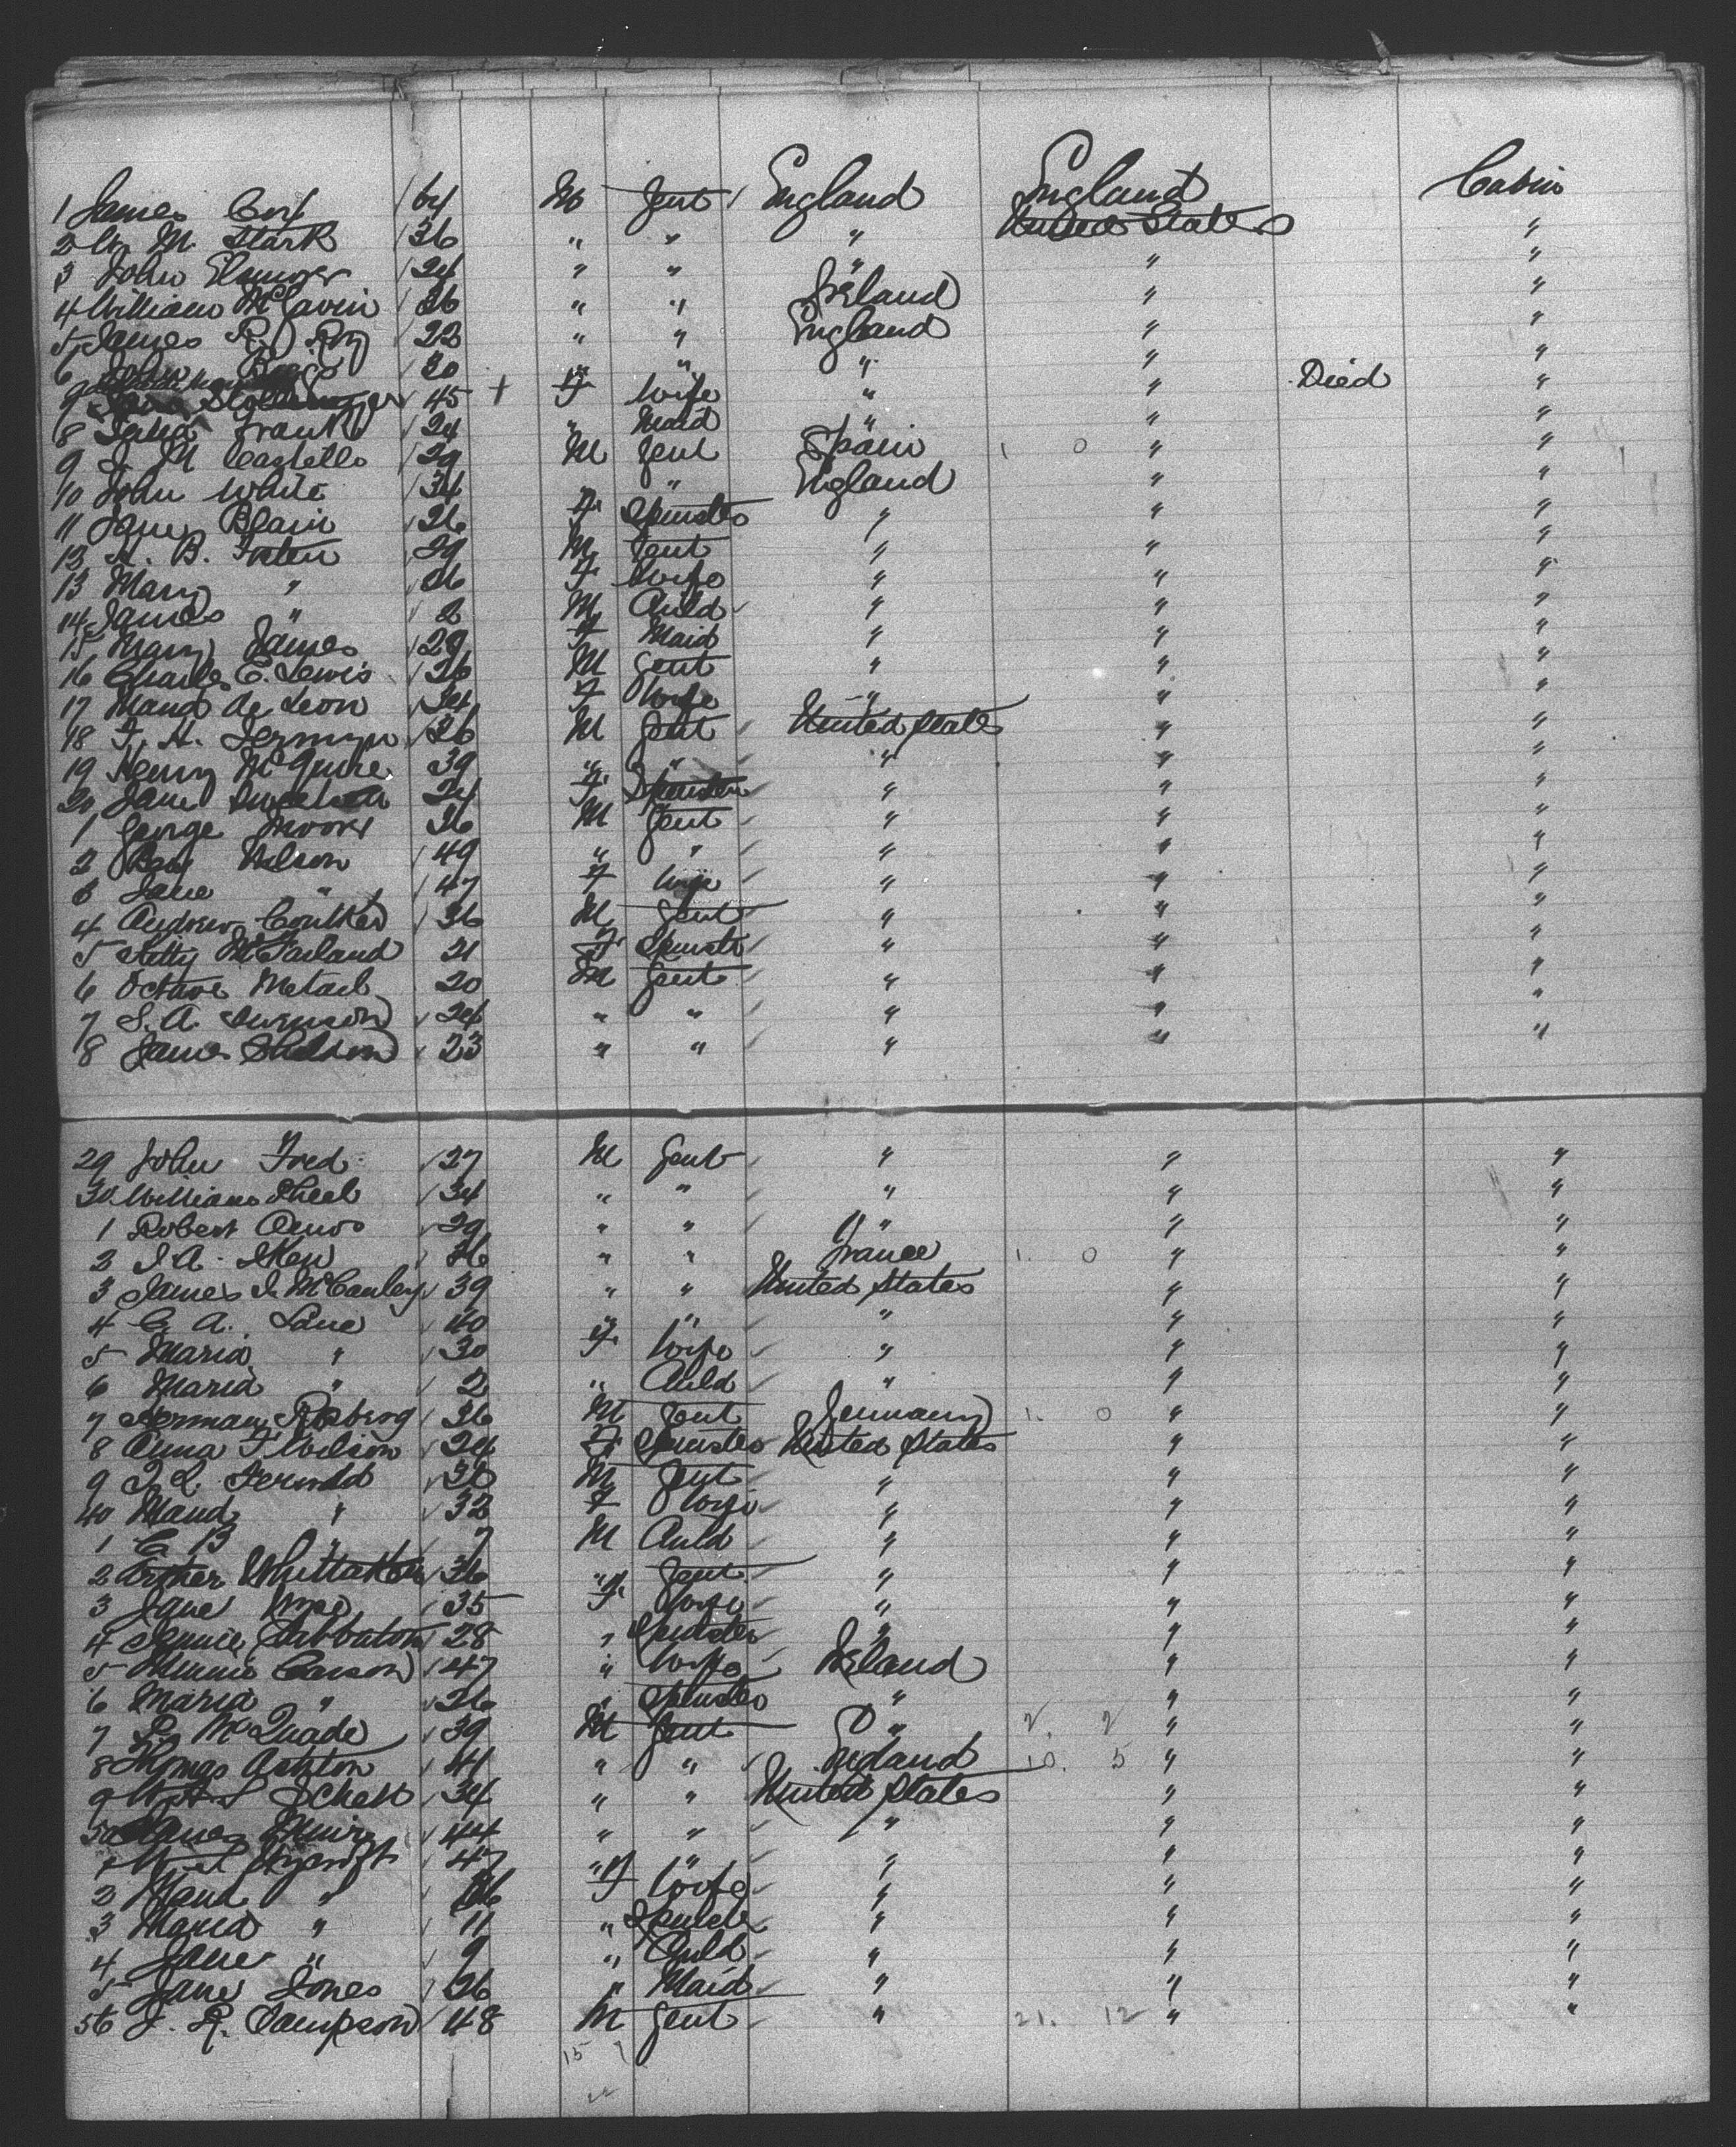 1 James 64 M Gent England England Cabin
2 M. Stark 36 " " " United States "
3 John 24 " " " " "
4 William McGavin 36 " " Ireland " "
5 James R. Roy 22 " " England " "
6 John 30 " " " " "
7 45 + F Wife " " Died "
8 Frank 24 " Maid " " "
9 M Castello 29 M Gent Spain 1 0 " "
10 John White 34 " " England " "
11 Jane Blair 26 F Spinster " " "
12 B. 29 M Gent " " "
13 Mary " 26 F Wife " " "
14 James " 2 M Child " " "
15 Mary James 28 F Maid " " "
16 Charles E. Lewis 26 M Gent " " "
17 Maud de Leon 34 F Wife " " "
18 F. H. Jermyn 36 M Gent United States " "
19 Henry McGuire 39 " " " " "
20 Jane 24 F Spinster " " "
1 George 36 M Gent " " "
2 Nelson 49 " " " " "
3 Jane " 47 F Wife " " "
4 Andrew Coulter 36 M Gent " " "
5 Kitty McFarland 21 F Spinster " " "
6 Octave 20 M Gent " " "
7 S. A. 24 " " " " "
8 James Sheldon 23 " " " " "
29 John Fred 27 M Gent " " "
30 William 34 " " " " "
1 Robert Amos 29 " " " " "
2 36 " " France 1. 0 " "
3 James McCauley 39 " " United States " "
4 C. A. Lane 40 " " " " "
5 Maria " 30 F Wife " " "
6 Maria " 2 " Child " " "
7 Herman 36 M Gent Germany 1. 0 " "
8 Anna F Wilson 24 F Spinster United States " "
9 36 M Gent " " "
40 Maud " 32 F Wife " " "
1 C B " 7 M Child " " "
2 Arther Whittaker 36 " Gent " " "
3 Jane 35 F Wife " " "
4 Jennie Sabbaton 28 " Spinster " " "
5 Minnie Carson 47 " Wife Ireland " "
6 Maria " 26 " Spinster " " "
7 McQuade 39 M Gent " 2. 2 " "
8 Thomas Ashton 41 " " England 10. 5 " "
9 34 " " United States " "
50 James 44 " " " " "
1 47 " " " " "
2 " 36 F Wife " " "
3 Maria " 11 " Spinster " " "
4 Jane " 9 " Child " " "
5 Jane Jones 26 " Maid " " "
56 J. R. Sampson 48 M Gent " 21. 12 " "
15 7